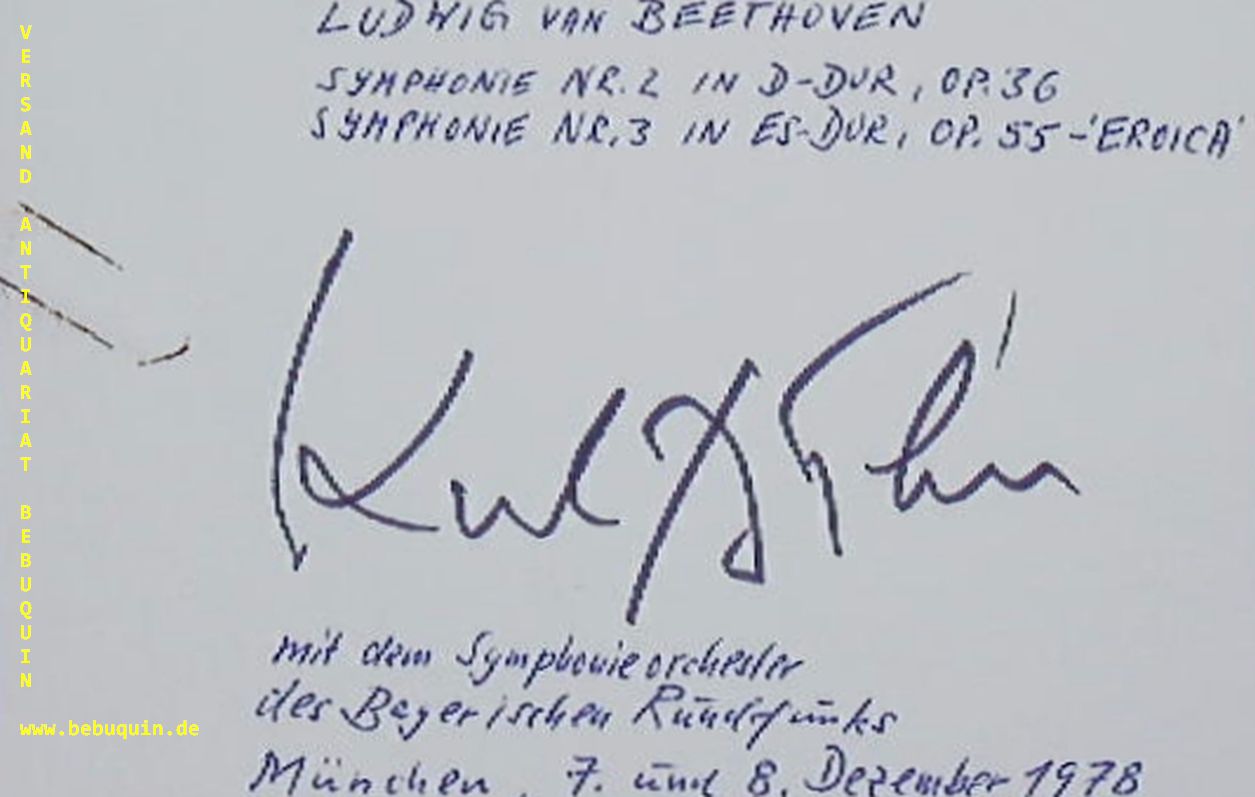 LUDWIG VAN BEETHOVEN
SYMPHONIE NR. 2 IN D-DUR, OP. 36
SYMPHONIE NR. 3 IN ES-DUR, OP. 55 - 'EROICA'
mit dem Symphonieorchester
des Bayerischen Rundfunks
München, 7. und 8. Dezember 1978
VERSAND ANTIQUARIAT BEBUQUIN
www.bebuquin.de